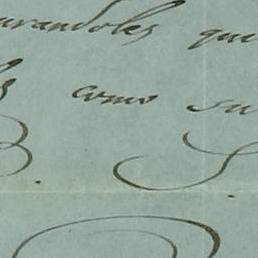 urandoles qui
como su